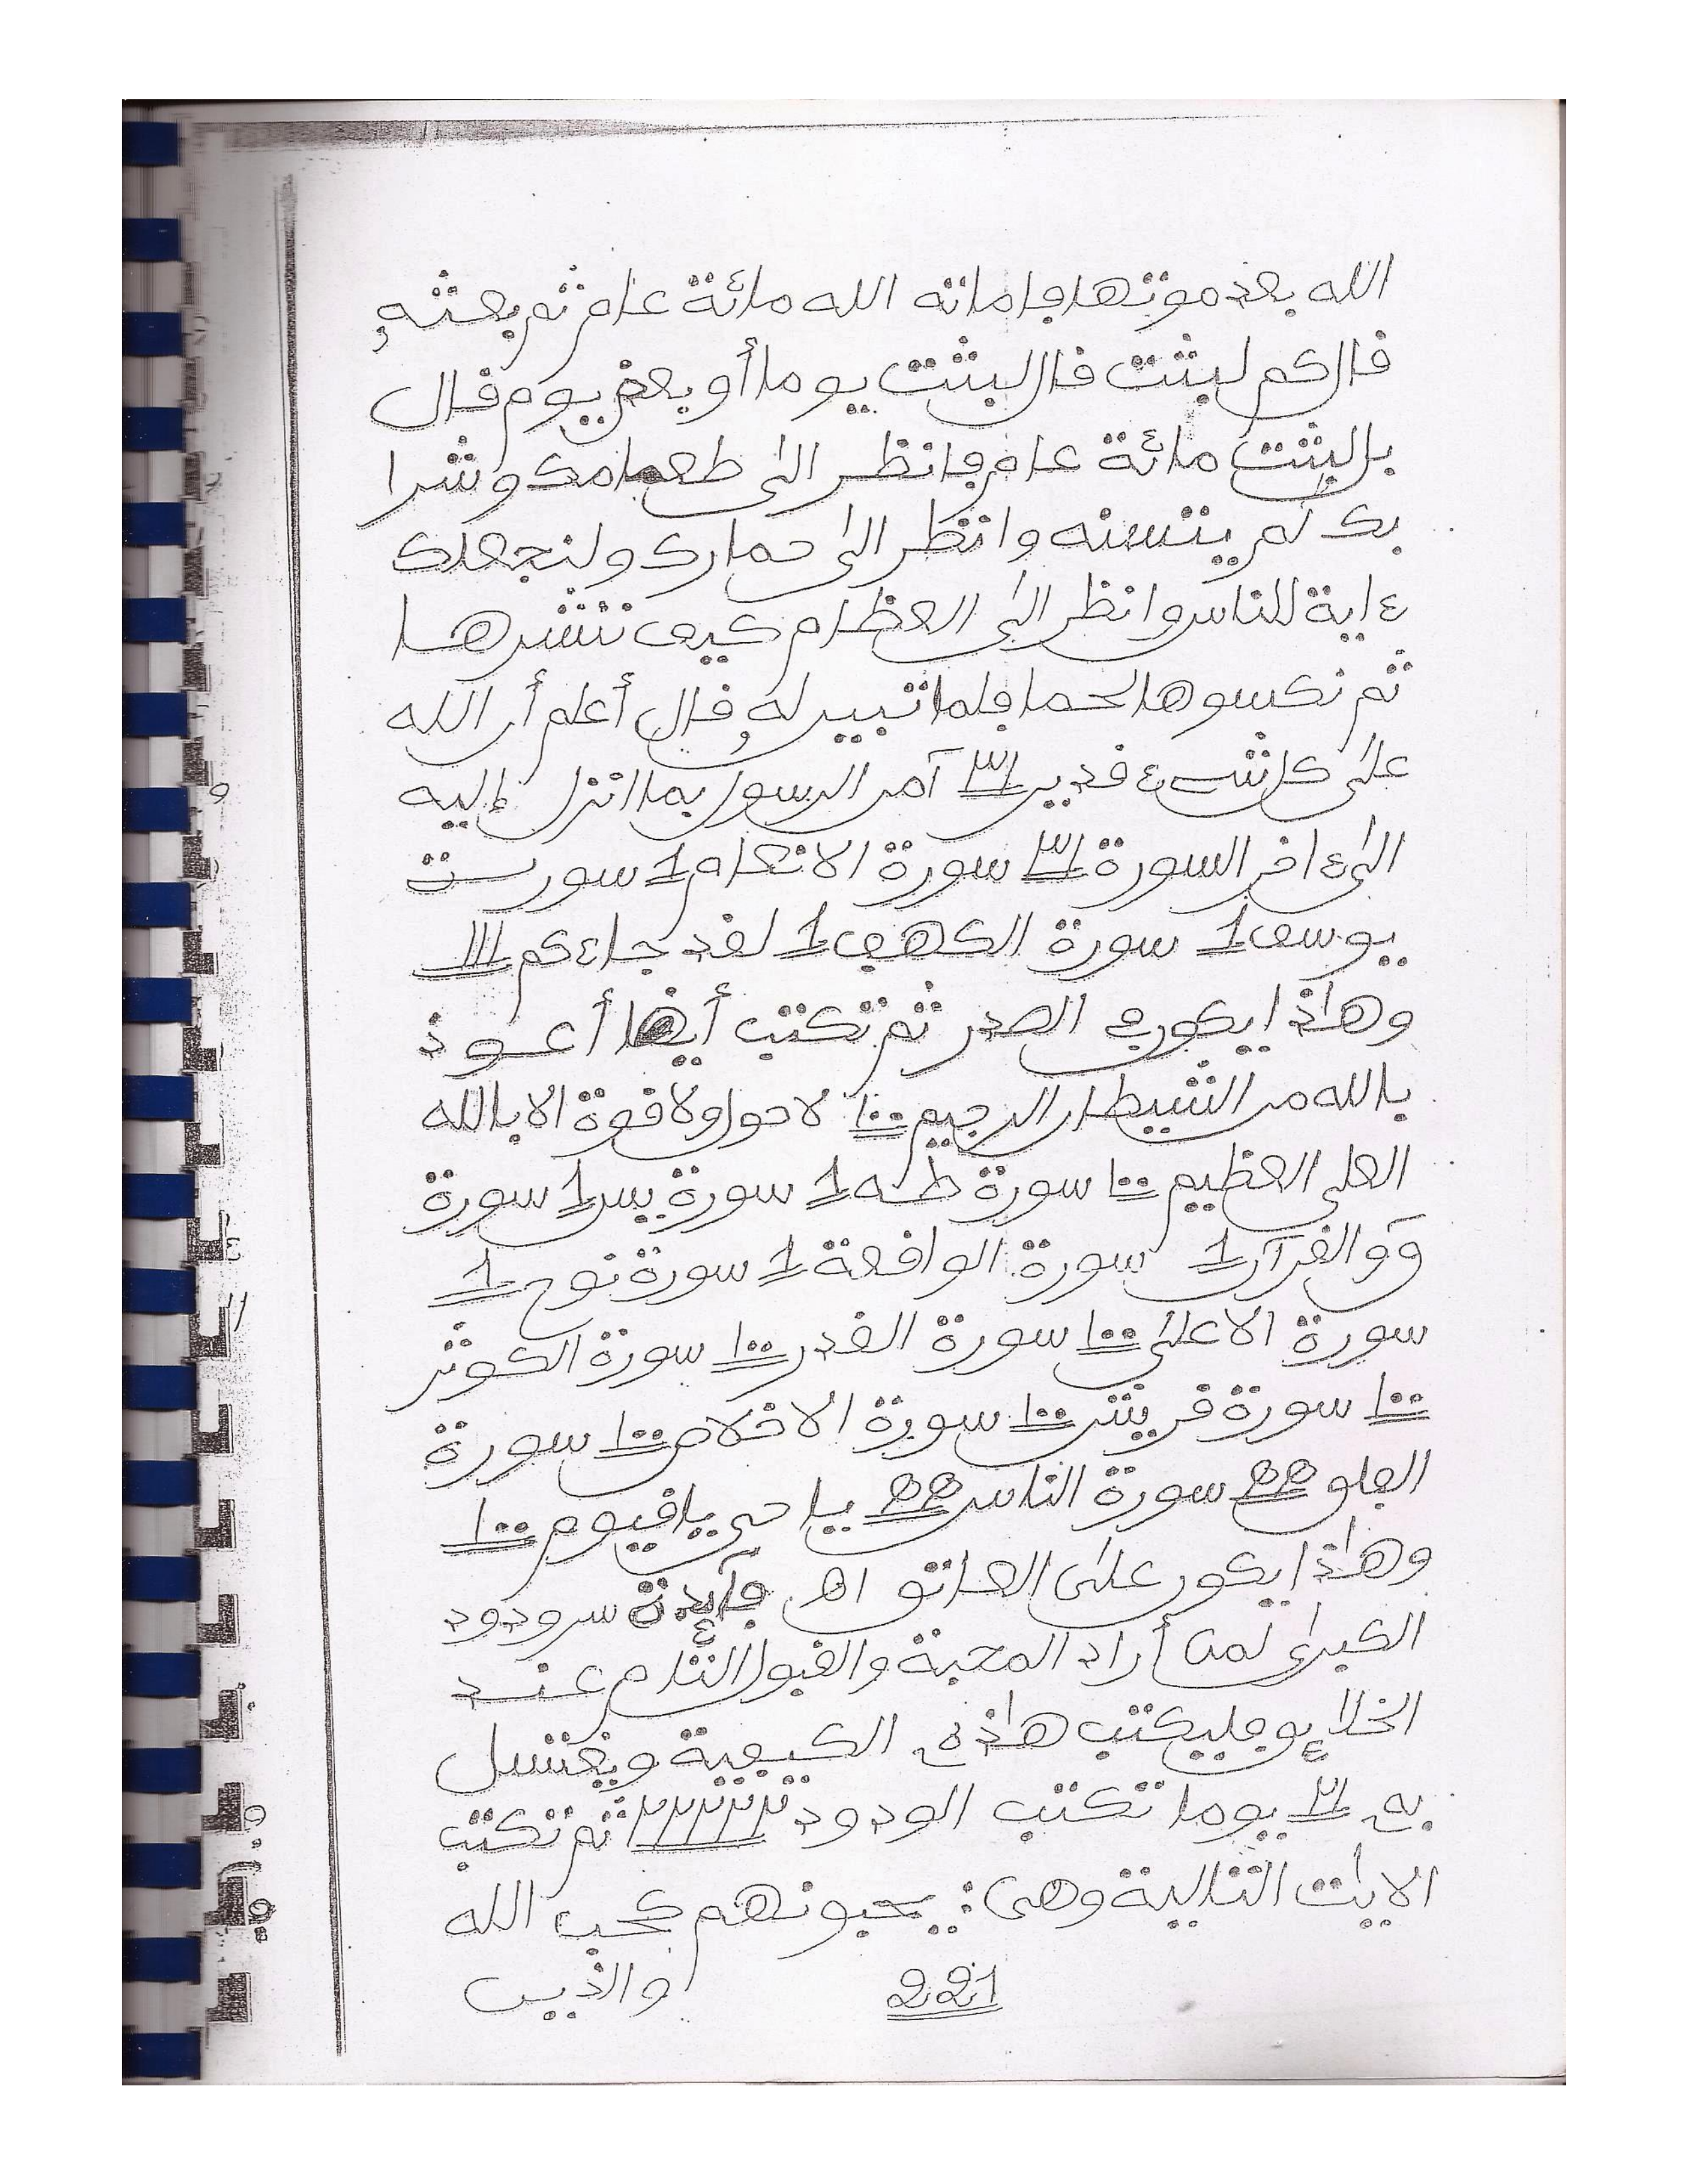 الله بعد موتها فاماته الله مائة عام ثم بعثه
قال كم لبثت قال لبثت يوما أو بعض يوم قال
بل لبثت مائة عام فانظر الى طعامك وشرا
بك لم يتسنه وانظر الى حمارك ولنجعلك
ءاية للناس وانظر الى العظام كيف ننشرها
ثم نكسوها لحما فلما تبين له قال أعلم أن الله
على كل شىء قدير ٣١ آمن الرسول بما انزل إليه
الى ءاخر السورة ٣١ سورة الانعام 1 سورت
يوسف 1 سورة الكهف 1 لقد جاءكم ١١١
وهاذا يكون في الصدر ثم تكتب أيضا أعوذ
بالله من الشيطان الرجيم ١٠٠ لا حول ولا قوة الا بالله
العلي العظيم ١٠٠ سورة طه 1 سورة يس 1 سورة
ق والقرآن 1 سورة الواقعة 1 سورة نوح 1
سورة الاعلى ١٠٠ سورة القدر ١٠٠ سورة الكوثر
١٠٠ سورة قريش ١٠٠ سورة الاخلاص ١٠٠ سورة
الفلق سورة الناس يا حي يا قيوم ١٠٠
وهاذا يكون على العاتق اه فآئدة سر ودود
الكبرى لمن أراد المحبة والقبول التام عند
الخلائق فليكتب هاذه الكيفية ويغتسل
به ٣١ يوما تكتب الودود ثم تكتب
الايات التالية وهي: يحبونهم كحب الله
221 والذين